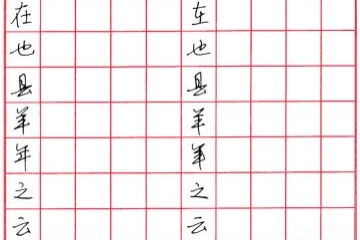 在 在
也 也
县 县
羊 羊
年
之 之
云 云